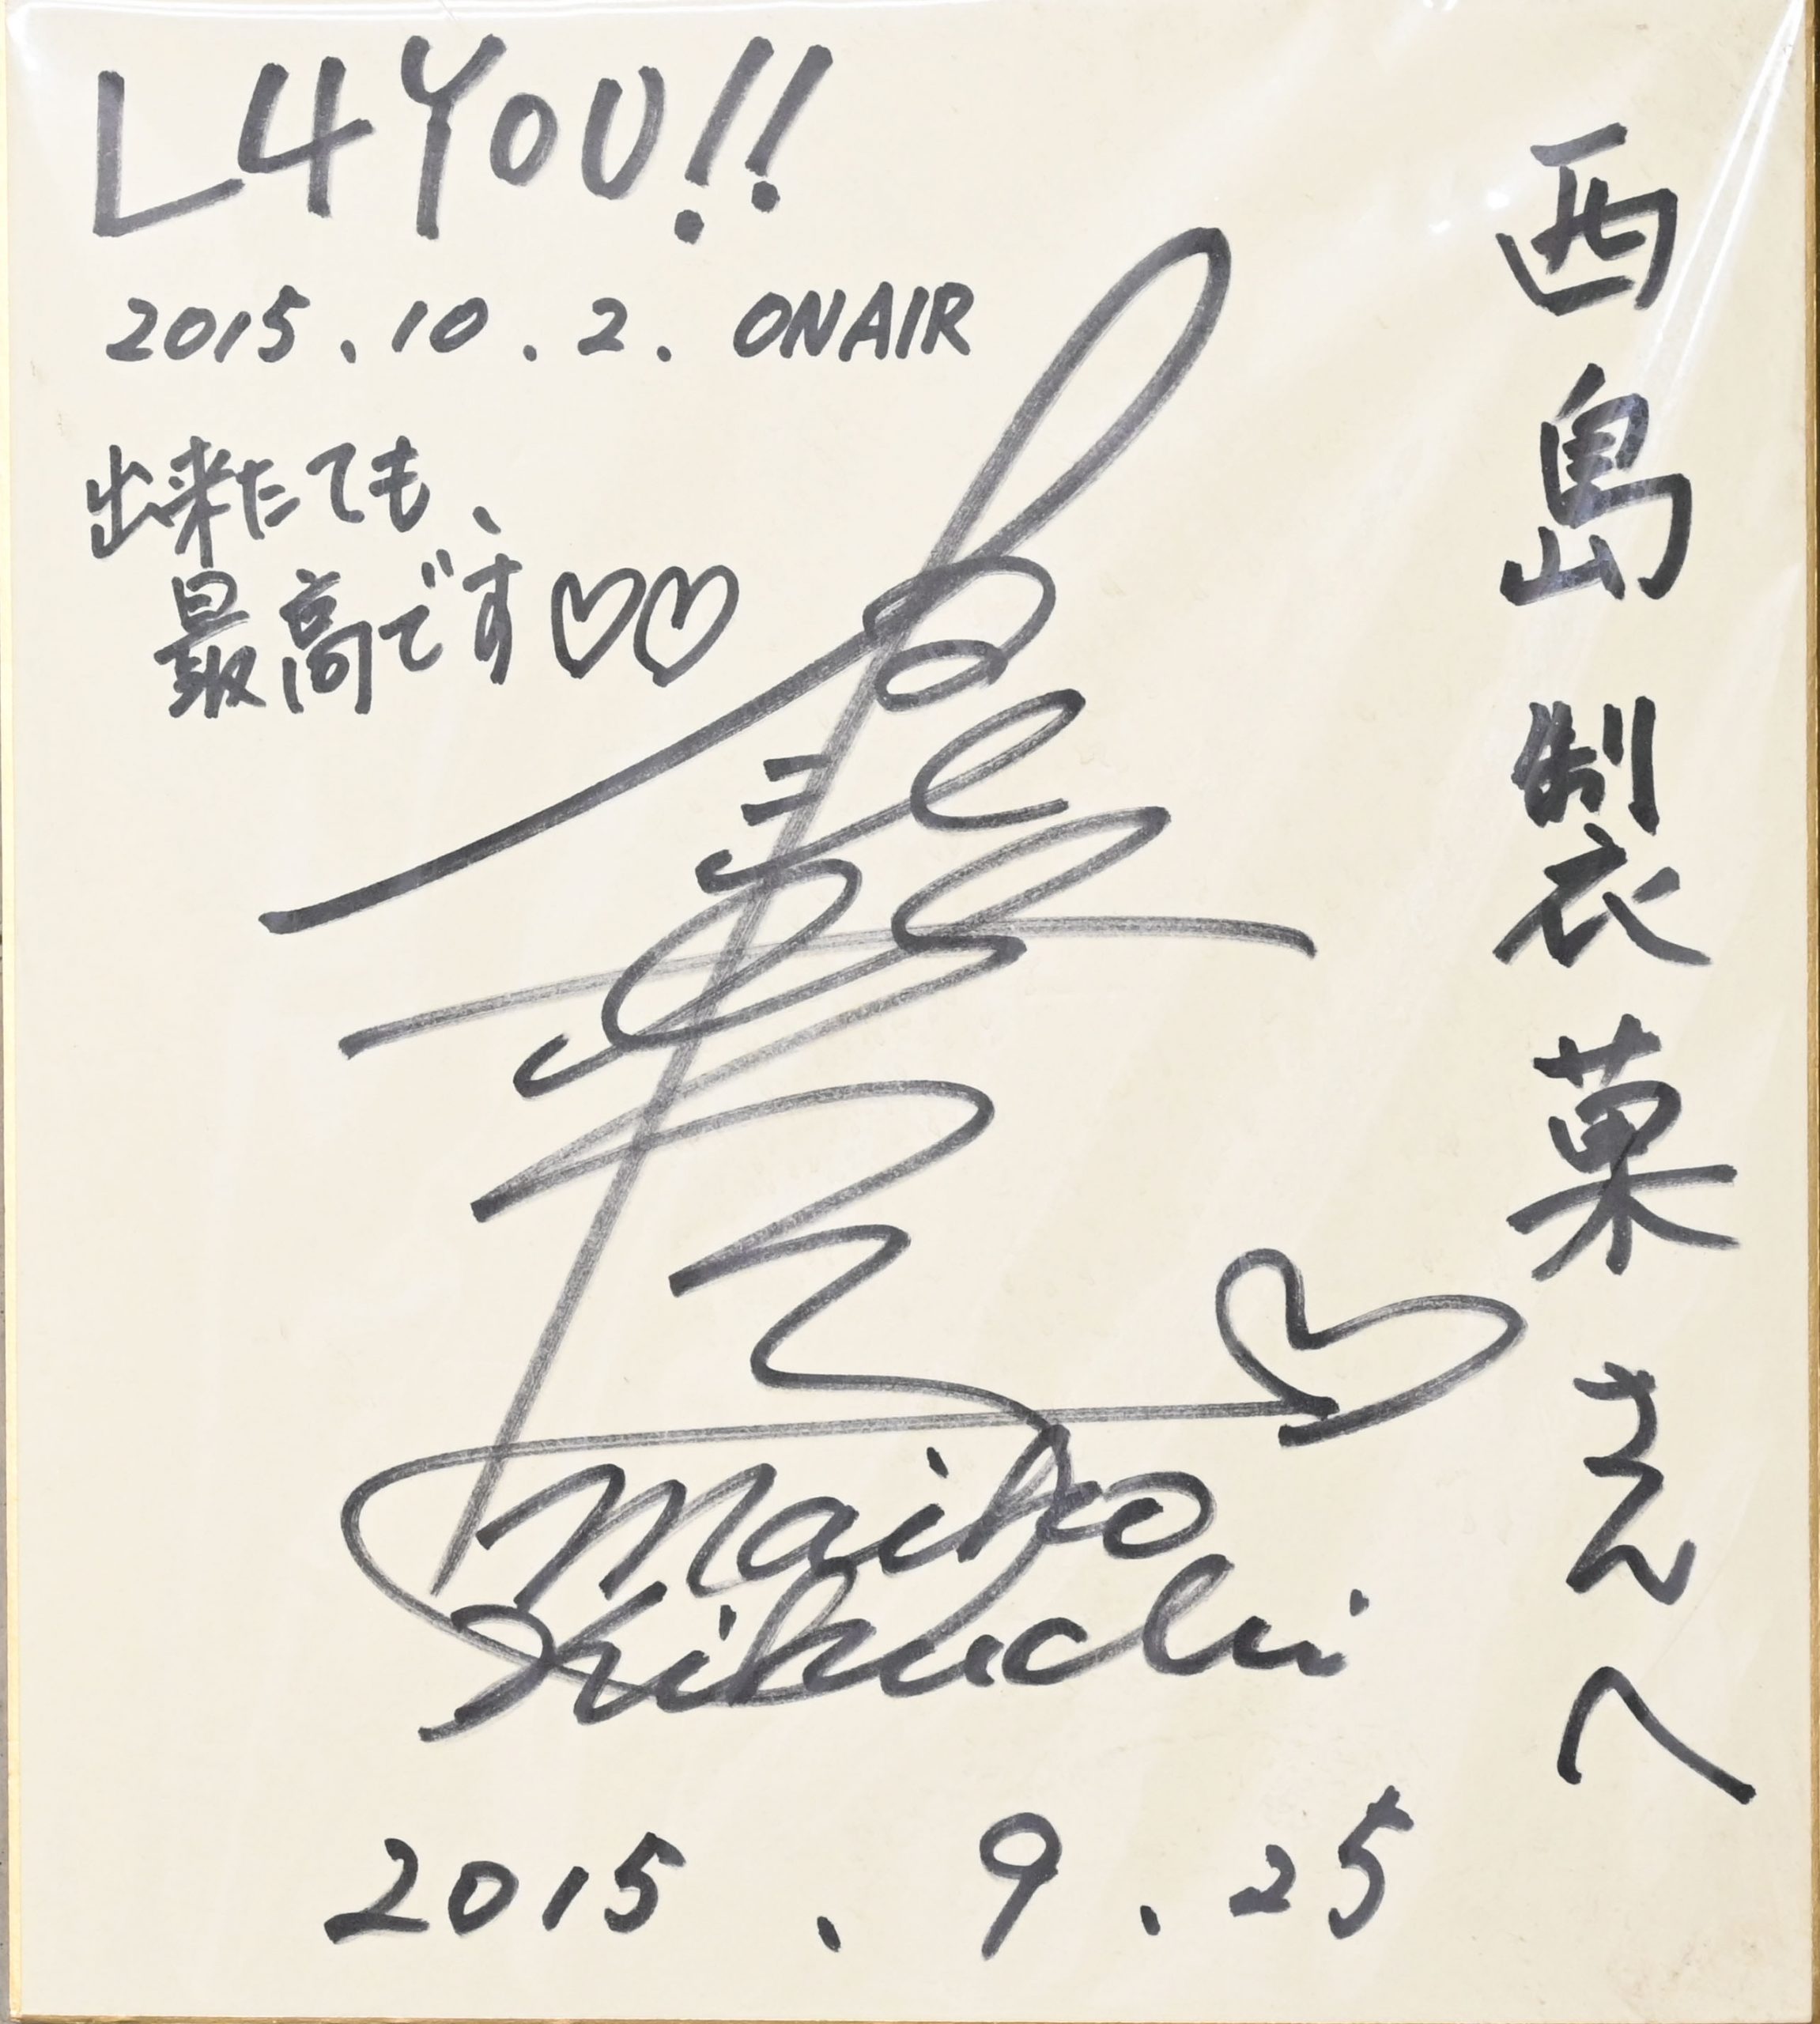 L4YOU!!
2015.10.2. ONAIR
出来たても、
最高です♡♡
西島製菓さんへ
Maiko
Kikuchi
2015.9.25